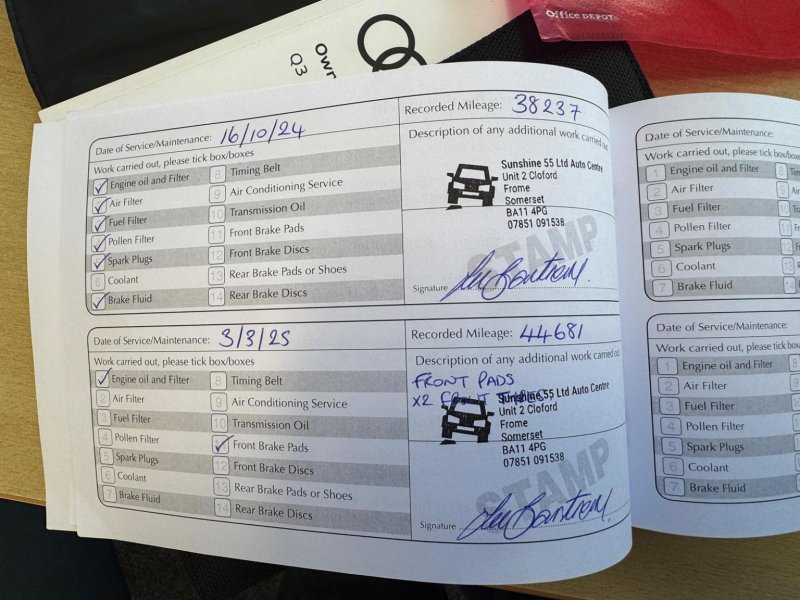 Office DEPOT
Own
Q3
Date of Service/Maintenance: 16/10/24
Recorded Mileage: 38237
Work carried out, please tick box/boxes
Description of any additional work carried out
Engine oil and Filter
8 Timing Belt
Air Filter
9 Air Conditioning Service
Fuel Filter
10 Transmission Oil
Pollen Filter
11 Front Brake Pads
Spark Plugs
12 Front Brake Discs
6 Coolant
13 Rear Brake Pads or Shoes
Brake Fluid
14 Rear Brake Discs
Sunshine 55 Ltd Auto Centre
Unit 2 Cloford
Frome
Somerset
BA11 4PG
07851 091538
STAMP
Signature
Date of Service/Maintenance: 3/3/25
Recorded Mileage: 44681
Work carried out, please tick box/boxes
Description of any additional work carried out
Engine oil and Filter
8 Timing Belt
2 Air Filter
9 Air Conditioning Service
3 Fuel Filter
10 Transmission Oil
4 Pollen Filter
Front Brake Pads
5 Spark Plugs
12 Front Brake Discs
6 Coolant
13 Rear Brake Pads or Shoes
7 Brake Fluid
14 Rear Brake Discs
FRONT PADS
X2 FRONT
Sunshine 55 Ltd Auto Centre
Unit 2 Cloford
Frome
Somerset
BA11 4PG
07851 091538
STAMP
Signature
Date of Service/Maintenance:
Work carried out, please tick box/boxes
1 Engine oil and Filter
2 Air Filter
3 Fuel Filter
4 Pollen Filter
5 Spark Plugs
6 Coolant
7 Brake Fluid
Date of Service/Maintenance:
Work carried out, please tick box
1 Engine oil and Filter
2 Air Filter
3 Fuel Filter
4 Pollen Filter
5 Spark Plugs
6 Coolant
7 Brake Fluid